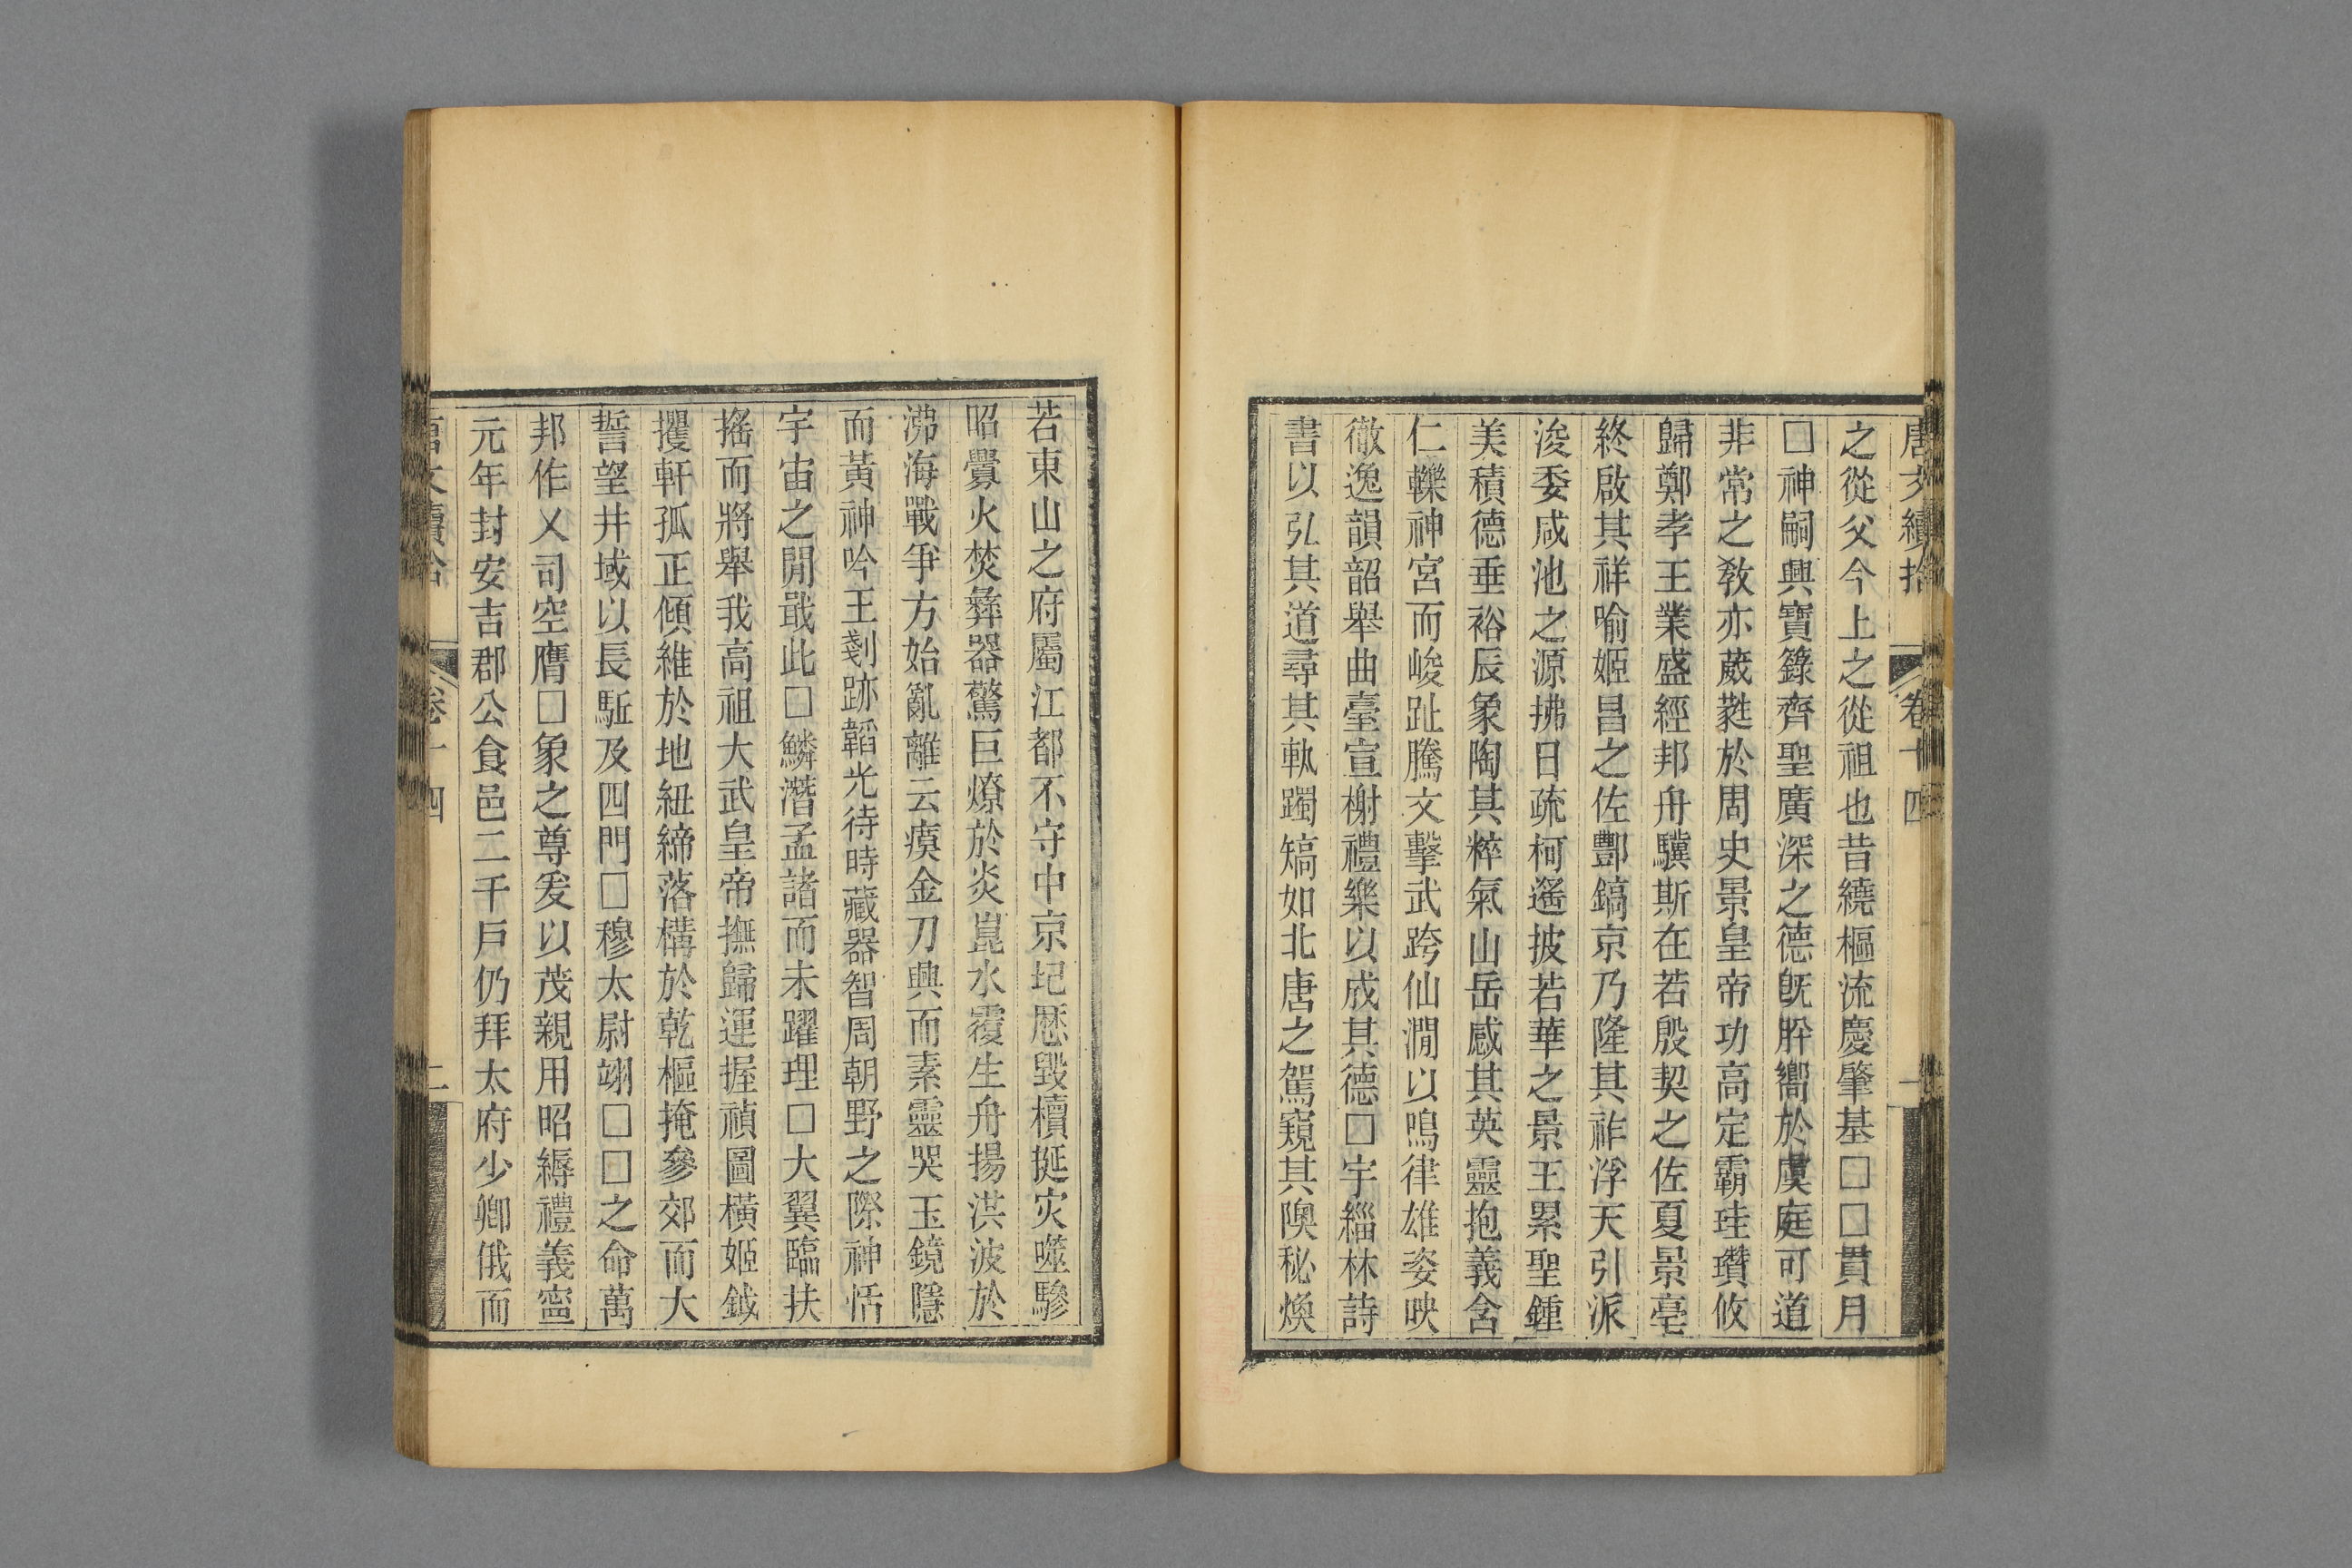 唐文續拾 卷十四 一
之從父今上之從祖也昔繞樞流慶肇基□□貫月
□神嗣興寶籙齊聖廣深之德旣肸嚮於虞庭可道
非常之敎亦葳蕤於周史景皇帝功高定霸珪瓚攸
歸鄭孝王業盛經邦舟驥斯在若殷契之佐夏景亳
終啟其祥喻姬昌之佐酆鎬京乃隆其祚浮天引派
浚委咸池之源拂日疏柯遙披若華之景王累聖鍾
美積德垂裕辰象陶其粹氣山岳感其英靈抱義含
仁轢神宮而峻趾騰文擊武跨仙澗以鳴律雄姿映
徹逸韻韶舉曲臺宣榭禮樂以成其德□宇緇林詩
書以弘其道尋其軌躅矯如北唐之駕窺其隩秘煥
若東山之府屬江都不守中京圮歷毀櫝挻灾噬驂
昭釁火焚彝器驚巨燎於炎崑水覆生舟揚洪波於
沸海戰爭方始亂離云瘼金刀興而素靈哭玉鏡隱
而黃神吟王剗跡韜光待時藏器智周朝野之際神恬
宇宙之閒戢此□鱗潛孟諸而未躍理□大翼臨扶
搖而將舉我高祖大武皇帝撫歸運握禎圖橫姬鉞
攫軒孤正傾維於地紐締落構於乾樞掩參郊而大
誓望井域以長駈及四門□穆太尉翊□□之命萬
邦作乂司空膺□象之尊爰以茂親用昭縟禮義寧
元年封安吉郡公食邑二千戶仍拜太府少卿俄而
唐文續拾 卷十四 二